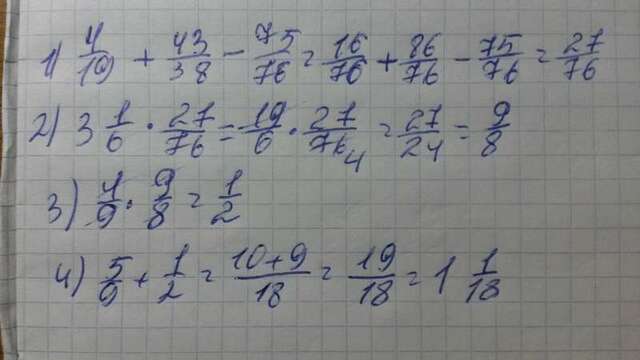 1) 4/19 + 43/38 - 75/76 = 16/76 + 86/76 - 75/76 = 27/76
2) 3 1/6 · 27/76 = 19/6 · 27/76 4 = 27/24 = 9/8
3) 4/9 · 9/8 = 1/2
4) 5/9 + 1/2 = 10+9/18 = 19/18 = 1 1/18